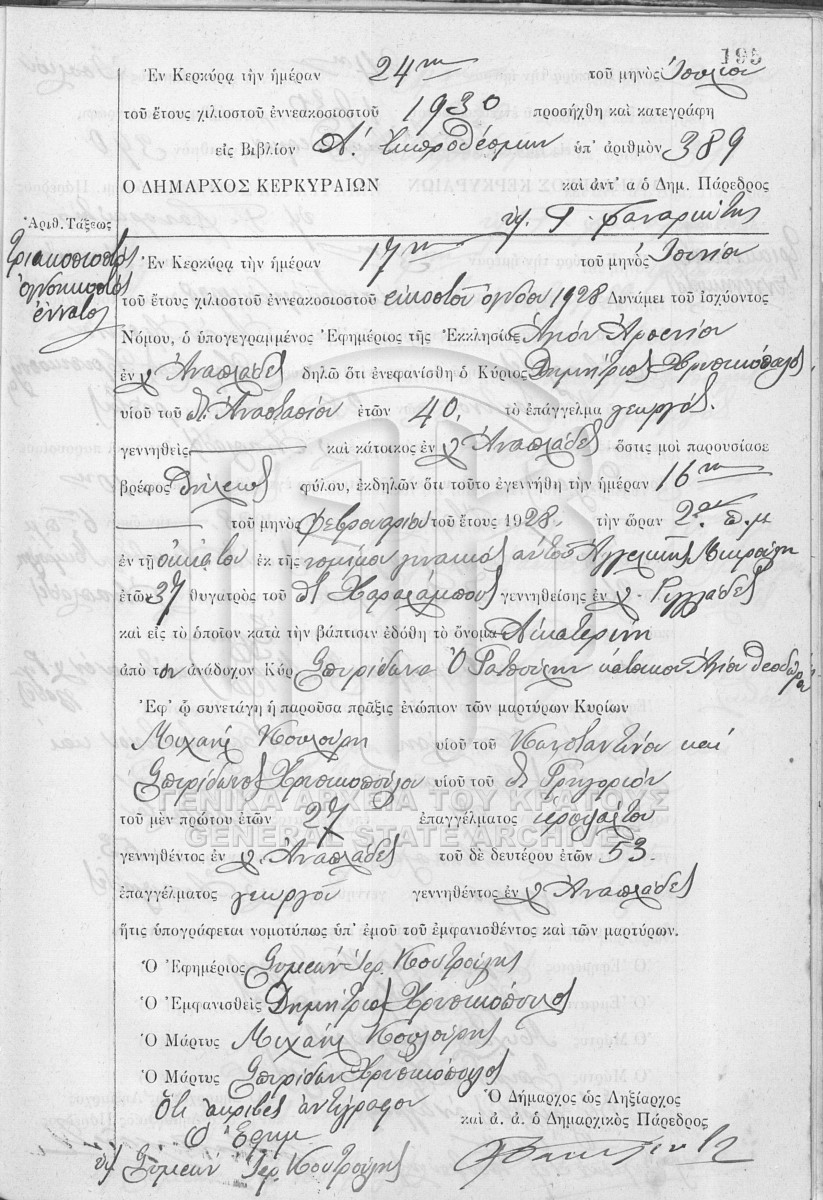 195
Ἐν Κερκύρᾳ τὴν ἡμέραν 24ην τοῦ μηνὸς Ἰουλίου
τοῦ ἔτους χιλιοστοῦ ἐννεακοσιοστοῦ 1930 προσήχθη καὶ κατεγράφη
εἰς Βιβλίον Α΄. ἐκπροθέσμων ὑπ' ἀριθμὸν 389
Ο ΔΗΜΑΡΧΟΣ ΚΕΡΚΥΡΑΙΩΝ καὶ ἀντ' α ὁ Δημ. Πάρεδρος
Ἀριθ. Τάξεως
Τριακοσιοστὸς
ὀγδοηκοστὸς
ἔννατος
Ἐν Κερκύρᾳ τὴν ἡμέραν 17ην τοῦ μηνὸς Ἰουνίου
τοῦ ἔτους χιλιοστοῦ ἐννεακοσιοστοῦ εἰκοστοῦ ὀγδόου 1928 Δυνάμει τοῦ ἰσχύοντος
Νόμου, ὁ ὑπογεγραμμένος Ἐφημέριος τῆς Ἐκκλησίας Ἁγίου Ἀρσενίου
ἐν χ. Ἀναπλάδες δηλῶ ὅτι ἐνεφανίσθη ὁ Κύριος Δημήτριος Χρυσικόπουλος,
υἱοῦ τοῦ Ἀναστασίου ἐτῶν 40, τὸ ἐπάγγελμα γεωργός.
γεννηθεὶς καὶ κάτοικος ἐν χ. Ἀναπλάδες ὅστις μοὶ παρουσίασε
βρέφος θήλεος φύλου, ἐκδηλῶν ὅτι τοῦτο ἐγεννήθη τὴν ἡμέραν 16ην
τοῦ μηνὸς Φεβρουαρίου τοῦ ἔτους 1928, τὴν ὥραν 2αν π.μ
ἐν τῇ οἰκίᾳ του ἐκ τῆς νομίμου γυναικὸς αὐτοῦ Ἀγγελικῆς
ἐτῶν 37 θυγατρὸς τοῦ Χαραλάμπους γεννηθείσης ἐν χ. Ριγγλάδες
καὶ εἰς τὸ ὁποῖον κατὰ τὴν βάπτισιν ἐδόθη τὸ ὄνομα Αἰκατερίνη
ἀπὸ τὸν ἀνάδοχον Κύρ Σπυρίδωνα κάτοικον Ἁγίου Θεοδώρου
Ἐφ' ᾧ συνετάγη ἡ παροῦσα πρᾶξις ἐνώπιον τῶν μαρτύρων Κυρίων
Μιχαὴλ Κουλούρη υἱοῦ τοῦ Κωνσταντίνου καὶ
Σπυρίδωνος Χρυσικοπούλου υἱοῦ τοῦ Γρηγορίου
ΓΕΝΙΚΑ ΑΡΧΕΙΑ ΤΟΥ ΚΡΑΤΟΥΣ
GENERAL STATE ARCHIVES
τοῦ μὲν πρώτου ἐτῶν 27 ἐπαγγέλματος ἱεροψάλτου
γεννηθέντος ἐν χ. Ἀναπλάδες τοῦ δὲ δευτέρου ἐτῶν 53
ἐπαγγέλματος γεωργοῦ γεννηθέντος ἐν χ. Ἀναπλάδες
ἥτις ὑπογράφεται νομοτύπως ὑπ' ἐμοῦ τοῦ ἐμφανισθέντος καὶ τῶν μαρτύρων.
Ὁ Ἐφημέριος Συμεὼν Ἱερ. Κουτρούλης
Ὁ Ἐμφανισθεὶς Δημήτριος Χρυσικόπουλος
Ὁ Μάρτυς Μιχαὴλ Κουλούρης
Ὁ Μάρτυς Σπυρίδων Χρυσικόπουλος
Ὅτι ἀκριβὲς ἀντίγραφον
Ὁ Ἐφημ
Ὁ Δήμαρχος ὡς Ληξίαρχος
καὶ ἀ. ἀ. ὁ Δημαρχικὸς Πάρεδρος
Συμεὼν Ἱερ. Κουτρούλης